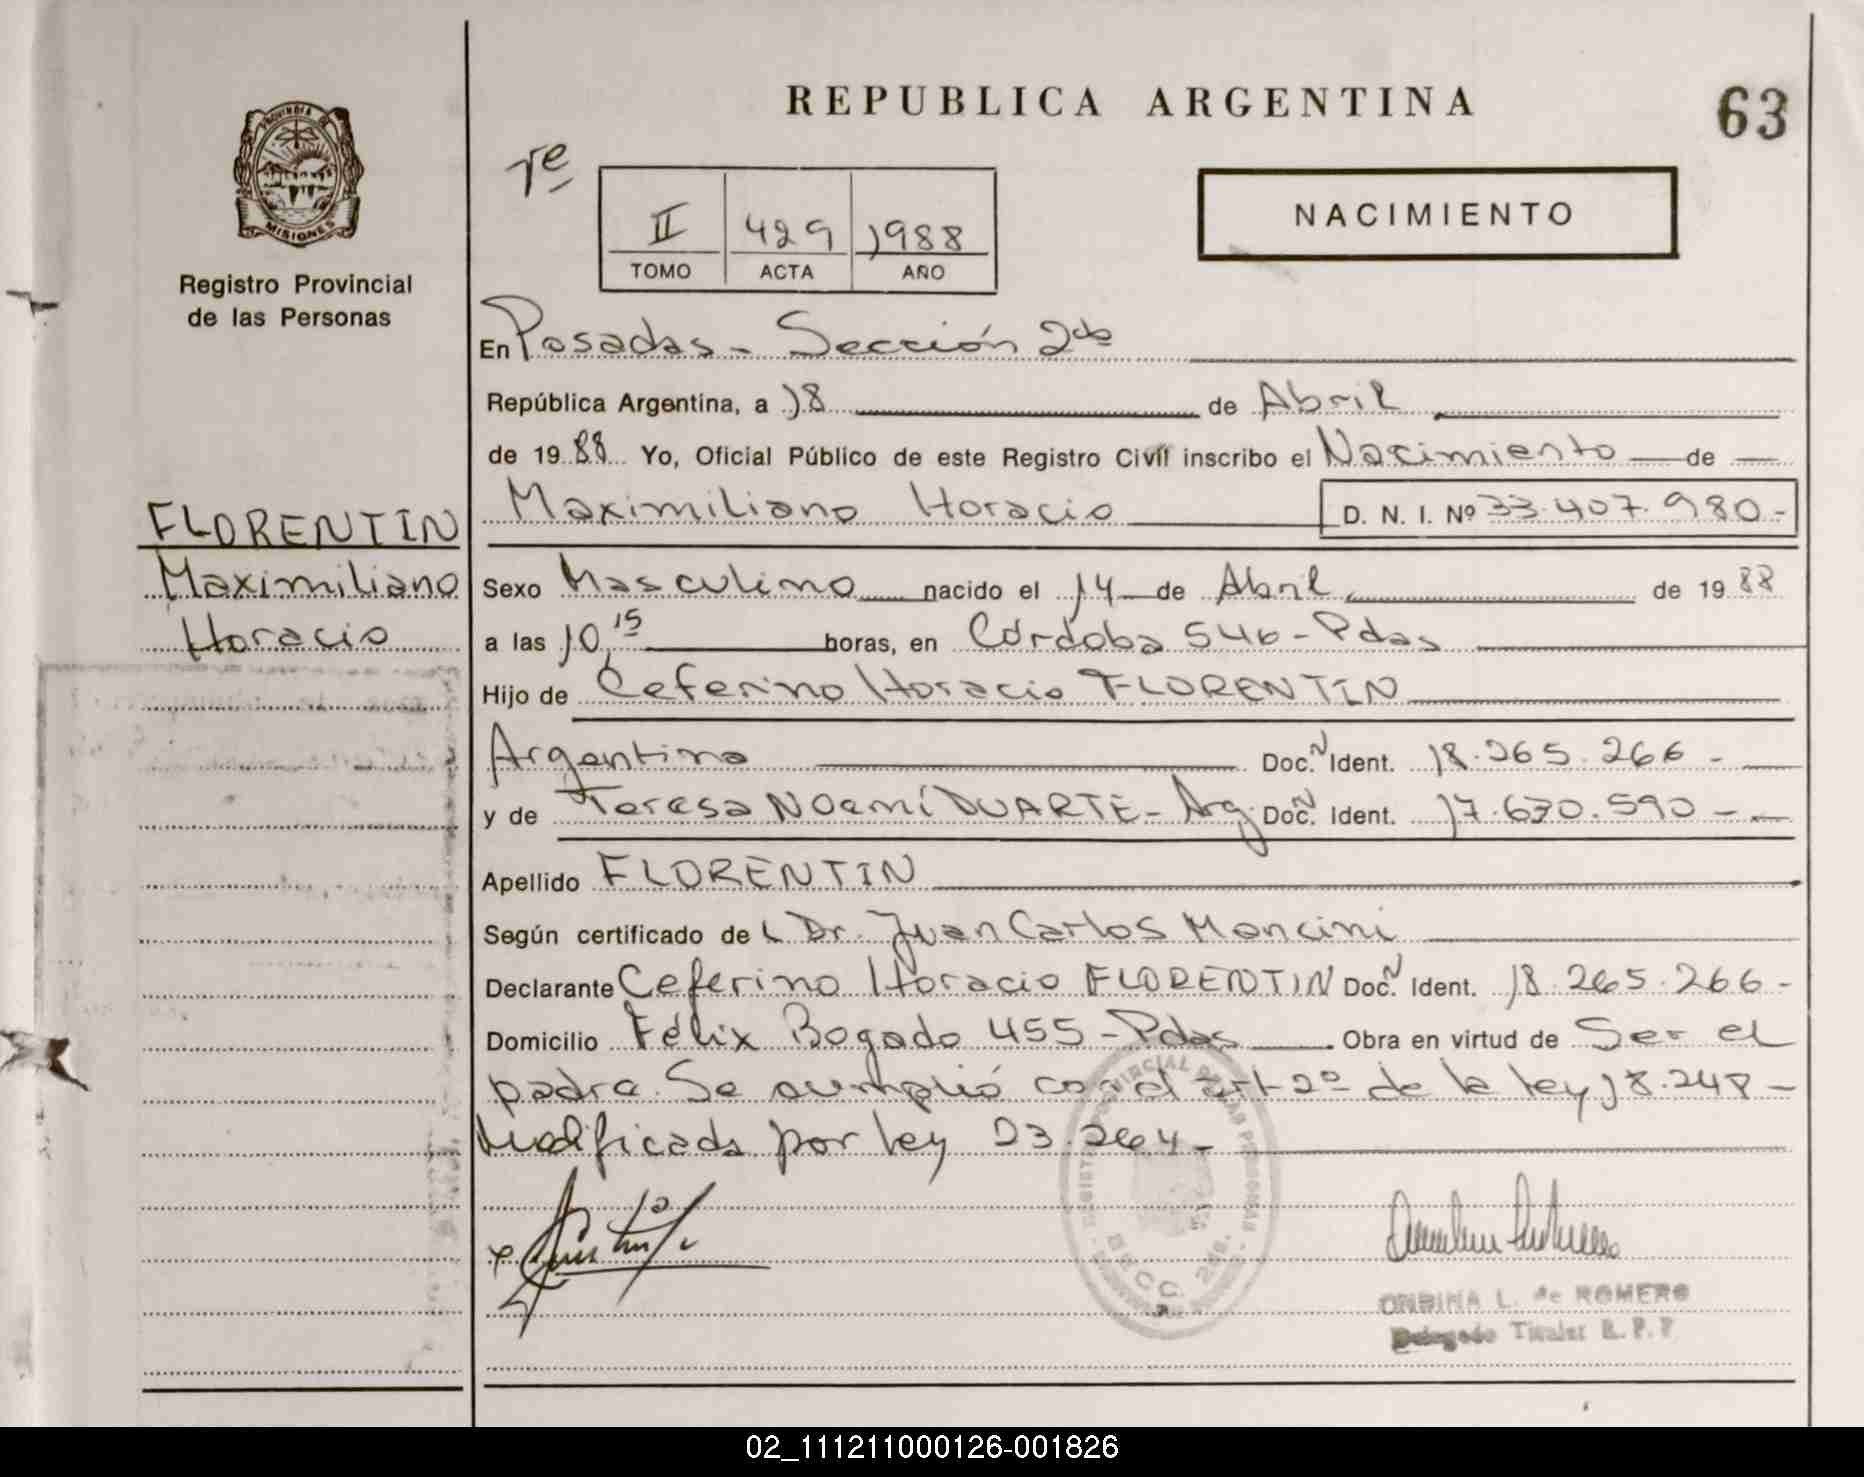 REPUBLICA ARGENTINA
63
PROVINCIA DE
MISIONES
Registro Provincial
de las Personas
II 429 1988
TOMO ACTA AÑO
NACIMIENTO
En Posadas - Sección 2da
República Argentina, a 18 de Abril
de 1988 Yo, Oficial Público de este Registro Civil inscribo el Nacimiento de
Maximiliano Horacio D. N. I. Nº 33.407.980.-
FLORENTIN
Maximiliano
Horacio
Sexo Masculino nacido el 14 de Abril de 1988
a las 10,15 horas, en Córdoba 546 - Pdas
Hijo de Ceferino Horacio FLORENTIN
Argentino Doc. N Ident. 18.265.266 -
y de Teresa Noemí DUARTE - Arg. Doc. N Ident. 17.630.590 -
Apellido FLORENTIN
Según certificado de L Dr. Juan Carlos Mancini
Declarante Ceferino Horacio FLORENTIN Doc. N Ident. 18.265.266 -
Domicilio Félix Bogado 455 - Pdas Obra en virtud de Ser el
padre. Se cumplió con el art 2º de la ley 18.248 -
Modificada por ley 23.264 -
SECC. 2da.
L. de ROMERO
Titular R. P. P
02_111211000126-001826